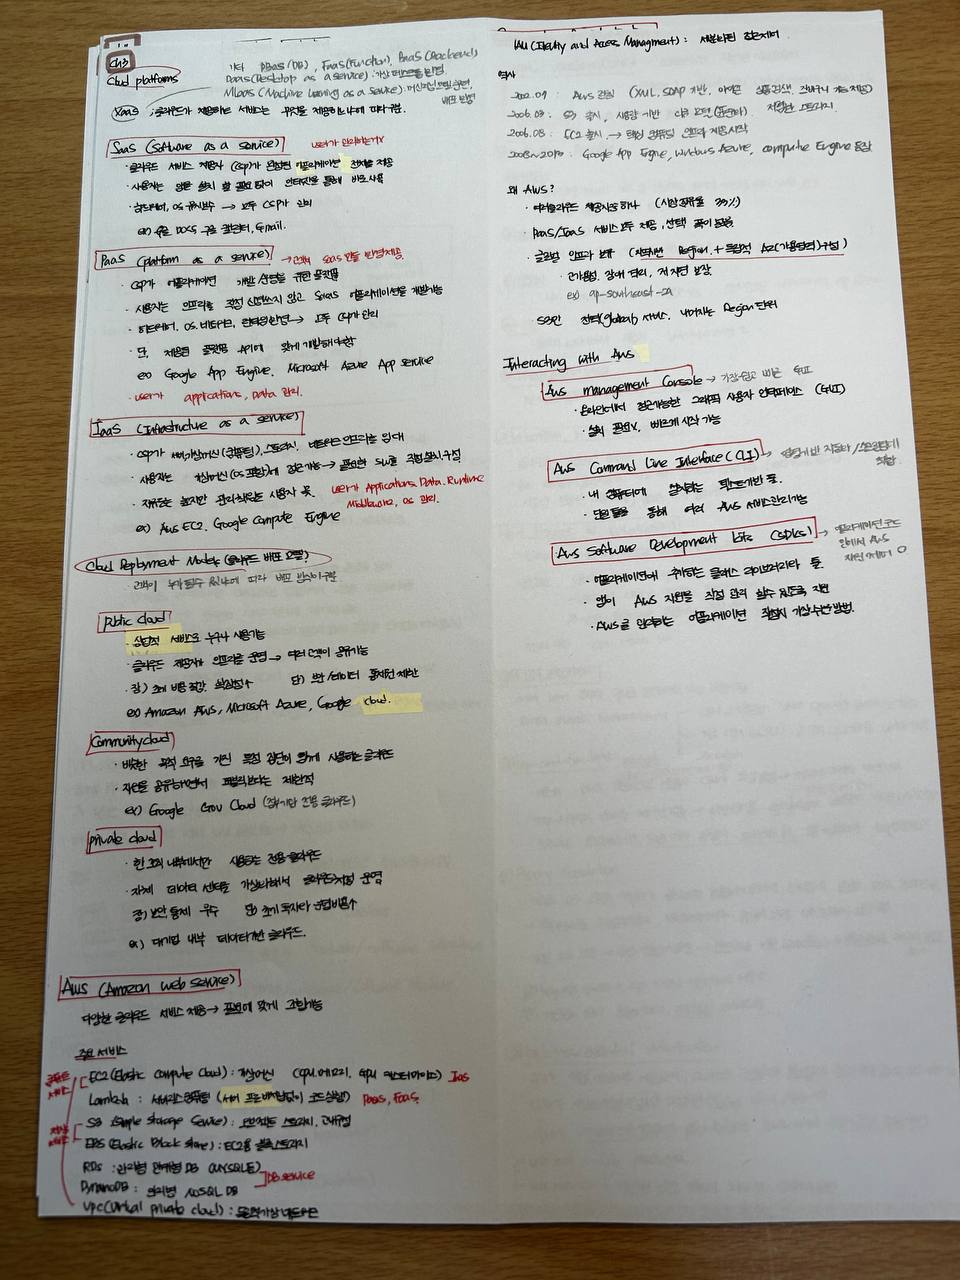 ch3
기타 DBaaS(DB), FaaS(Function), BaaS(Backend)
Cloud platforms
DaaS(Desktop as a service): 가상 데스크톱 환경,
MLaaS (Machine Learning as a Service): 머신러닝 모델 훈련,
배포 환경
XaaS : 클라우드가 제공하는 서비스는 무엇을 제공하느냐에 따라 구분.
SaaS (Software as a service) user가 관리하는거 X
· 클라우드 서비스 제공자 (CSP)가 완성된 애플리케이션 전체를 제공
· 사용자는 앱을 설치 할 필요 없이 인터넷을 통해 바로 사용
· 하드웨어, OS 유지보수 → 모두 CSP가 관리
ex) 구글 DOCS, 구글 캘린더, Gmail.
PaaS (platform as a service) → 고객이 SaaS 만들 환경 제공.
· CSP가 애플리케이션 개발 실행을 위한 플랫폼
· 사용자는 인프라를 직접 신경쓰지 않고 SaaS 애플리케이션을 개발가능
· 하드웨어, OS, 네트워크, 런타임 환경 → 모두 CSP가 관리
· 단, 제공된 플랫폼 API에 맞게 개발해야함
ex) Google App Engine, Microsoft Azure App Service
· user가 applications, Data 관리.
IaaS (Infrastructure as a service)
· CSP가 서버, 가상머신(컴퓨팅), 스토리지, 네트워크 인프라를 임대
· 사용자는 가상머신 (OS 포함)에 접근가능 → 필요한 SW를 직접 설치·구성
· 자유도는 높지만 관리 책임은 사용자 몫. user가 Applications, Data, Runtime
Middleware, OS 관리.
ex) AWS EC2, Google Compute Engine
Cloud Deployment Models (클라우드 배포 모델)
· 고객이 누가 될 수 있냐에 따라 배포 방식이 구분
public cloud
· 상업적 서비스로 누구나 사용가능
· 클라우드 제공자가 인프라를 운영 → 여러 고객이 공유가능
· 장) 초기 비용 절감, 확장성↑ 단) 보안/데이터 통제권 제한
ex) Amazon AWS, Microsoft Azure, Google cloud.
Community cloud
· 비슷한 목적 요구를 가진 특정 집단이 함께 사용하는 클라우드
· 자원을 공유하면서 퍼블릭보다는 제한적
· ex) Google Gov Cloud (정부기관 전용 클라우드)
private cloud
· 한 조직 내부에서만 사용하는 전용 클라우드
· 자체 데이터 센터를 가상화해서 클라우드처럼 운영
장) 보안 통제 우수 단) 초기 투자와 운영비용↑
ex) 대기업 내부 데이터기반 클라우드.
AWS (Amazon web service)
다양한 클라우드 서비스 제공 → 필요에 맞게 조합가능
주요 서비스
컴퓨트 서비스
EC2 (Elastic Compute Cloud) : 가상머신 (CPU, 메모리, GPU 커스터마이즈) IaaS
Lambda : 서버리스 컴퓨팅 (서버 프로비저닝없이 코드실행) PaaS, FaaS.
저장 서비스
S3 (Simple Storage Service) : 오브젝트 스토리지,
EBS (Elastic Block Store) : EC2용 블록스토리지
RDS : 관리형 관계형 DB (MySQL등)
DynamoDB : 관리형 NoSQL DB
DB service
VPC (Virtual private cloud) :
IAM (Identity and Access Managment) : 세분화된 접근제어
역사
2002.07 : AWS 런칭 (XML, SOAP 기반, 아마존 상품검색, 장바구니 기능 제공)
2006.03 : S3 출시, 사용량 기반 과금 모델 저렴한 스토리지
2006.08 : EC2 출시 → 핵심 컴퓨팅 인프라 제공시작
2008~2010 : Google App Engine, windows Azure, compute Engine 등장
왜 AWS?
· 퍼블릭클라우드 제공자중하나 (시장점유율 33%)
· PaaS/IaaS 서비스 모두 제공, 선택 폭이 넓음.
· 글로벌 인프라 보유 (지역별 Region + 독립적 AZ(가용영역)구성)
· 고가용성, 장애 격리, 저 지연 보장
ex) ap-southeast-2A
· S3만 전역(global) 서비스, 나머지는 Region 단위
Interacting with AWS
AWS management Console → 가장쉽고 빠른 GUI
· 온라인에서 접근가능한 그래픽 사용자 인터페이스 (GUI)
· 설치 필요X, 빠르게 시작 가능
AWS Command Line Interface (CLI) → 명령기반 자동화/스크립트에 적합
· 내 컴퓨터에 설치하는 텍스트기반 툴.
· 단일 툴을 통해 여러 AWS 서비스관리가능
AWS Software Development kits (SDKs) → 애플리케이션 코드
안에서 AWS
자원 제어 O
· 애플리케이션에 추가하는 클래스 라이브러리와 툴.
· 앱이 AWS 자원을 직접 관리 할수 있도록 지원
· AWS를 인식하는 애플리케이션 작성시 가장 쉬운 방법.